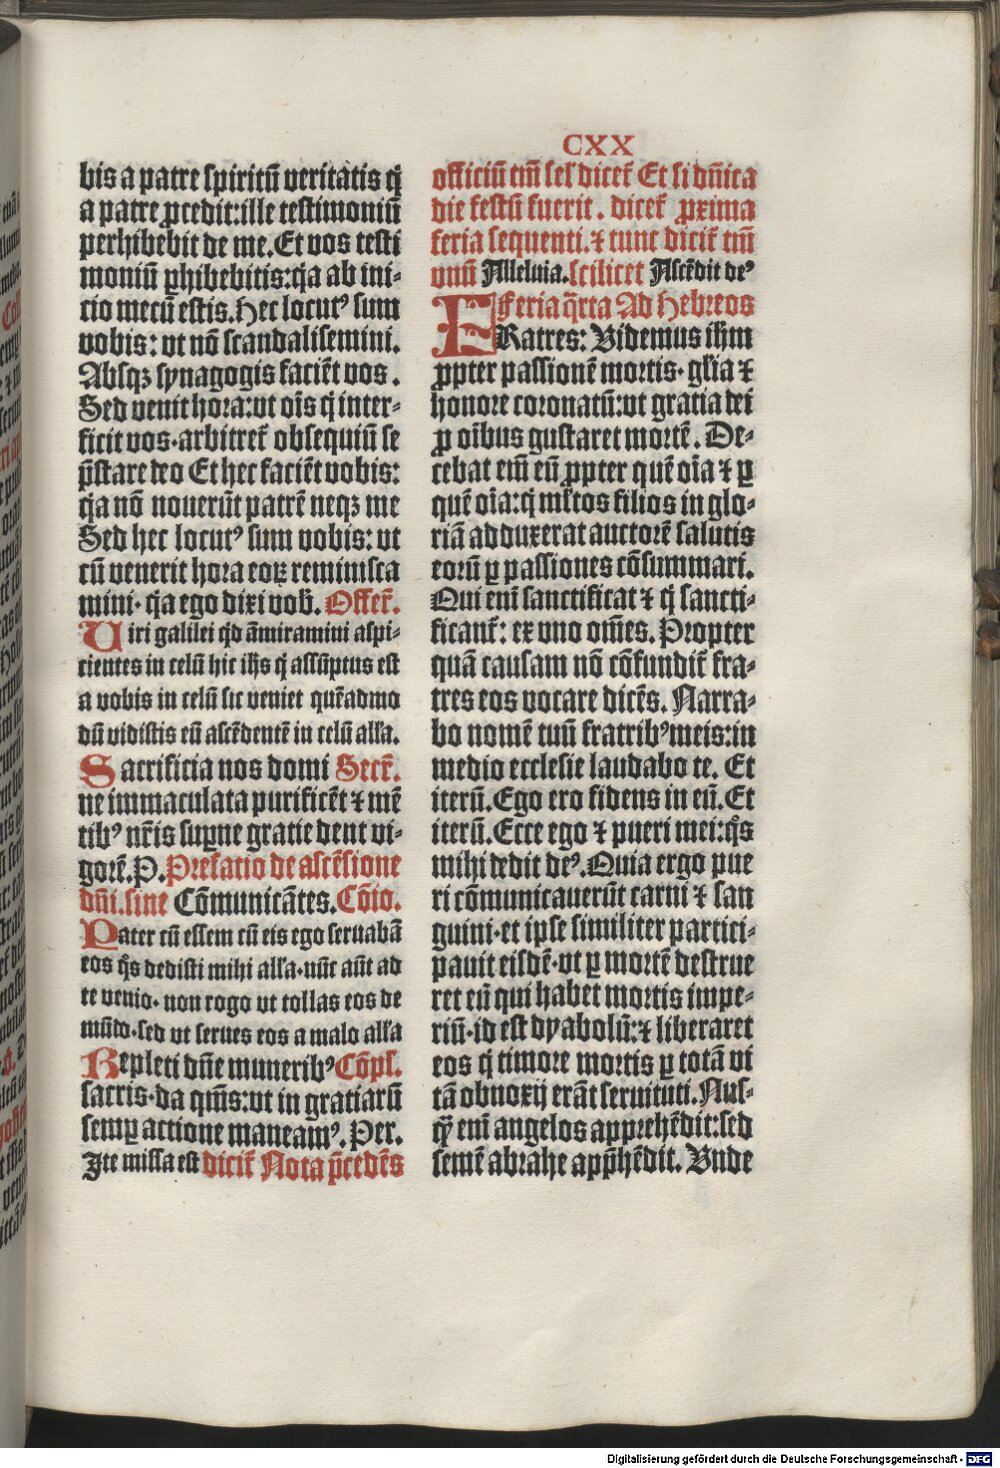 CXX
bis a patre spiritū veritatis q̄
a patre ꝓcedit: ille testimoniū
perhibebit de me. Et vos testi
moniū ꝑhibebitis: q̄a ab ini-
cio mecū estis. Hec locutꝰ sum
vobis: vt nō scandalisemini.
Absqꝫ synagogis faciēt vos.
Sed venit hora: vt oīs q̄ inter-
ficit vos. arbitret᷑ obsequiū se
p̄stare deo Et hec faciēt vobis:
q̄a nō nouerūt patrē neqꝫ me
Sed hec locutꝰ sum vobis: vt
cū venerit hora eoꝝ reminisca
mini. q̄a ego dixi vob̄. Offer̄.
Uiri galilei q̄d āmiramini aspi-
cientes in celū hic ih̄s q̄ assūptus est
a vobis in celū sic veniet quēadmo
dū vidistis eū ascēdentē in celū all̄a.
Sacrificia nos domi Secr̄.
ne immaculata purificēt ⁊ mē
tibꝰ nr̄is suꝑne gratie dent vi-
gorē. P. Prefatio de ascēsione
dn̄i. sine Cōmunicātes. Cōio.
Pater cū essem cū eis ego seruabā
eos q̄s dedisti mihi all̄a. nūc aūt ad
te venio. non rogo vt tollas eos de
mūdo. sed vt serues eos a malo all̄a
Repleti dn̄e muneribꝰ Cōpl.
sacris. da qm̄s: vt in gratiarū
semꝑ actione maneamꝰ. Per.
Ite missa est dicit᷑ Nota p̄cedēs
officiū tm̄ sel' dicet᷑ Et si dn̄ica
die festū fuerit. dicet᷑ ꝓxima
feria sequenti. ⁊ tunc dicit᷑ tm̄
vnū Alleluia. scilicet Ascēdit deꝰ
Feria q̄rta Ad Hebreos
FRatres: Videmus ih̄m
ꝓpter passionē mortis. gl̄ia ⁊
honore coronatū: vt gratia dei
ꝓ oībus gustaret mortē. De-
cebat eīm eū ꝓpter quē oīa ⁊ ꝑ
quē oīa: q̄ ml̄tos filios in glo-
riā adduxerat auctorē salutis
eorū ꝑ passiones cōsummari.
Qui enī sanctificat ⁊ q̄ sancti-
ficant᷑: ex vno om̄es. Propter
quā causam nō cōfundit᷑ fra-
tres eos vocare dicēs. Narra-
bo nomē tuū fratribꝰ meis: in
medio ecclesie laudabo te. Et
iterū. Ego ero fidens in eū. Et
iterū. Ecce ego ⁊ pueri mei: q̄s
mihi dedit deꝰ. Quia ergo pue
ri cōmunicauerūt carni ⁊ san
guini. et ipse similiter partici-
pauit eisdē. vt ꝑ mortē destrue
ret eū qui habet mortis impe-
riū. id est dyabolū: ⁊ liberaret
eos q̄ timore mortis ꝑ totā vi
tā obnoxij erāt seruituti. Nus-
q̄ȝ enī angelos apprehēdit: sed
semē abrahe app̄hēdit. Vnde
Digitalisierung gefördert durch die Deutsche Forschungsgemeinschaft - DFG